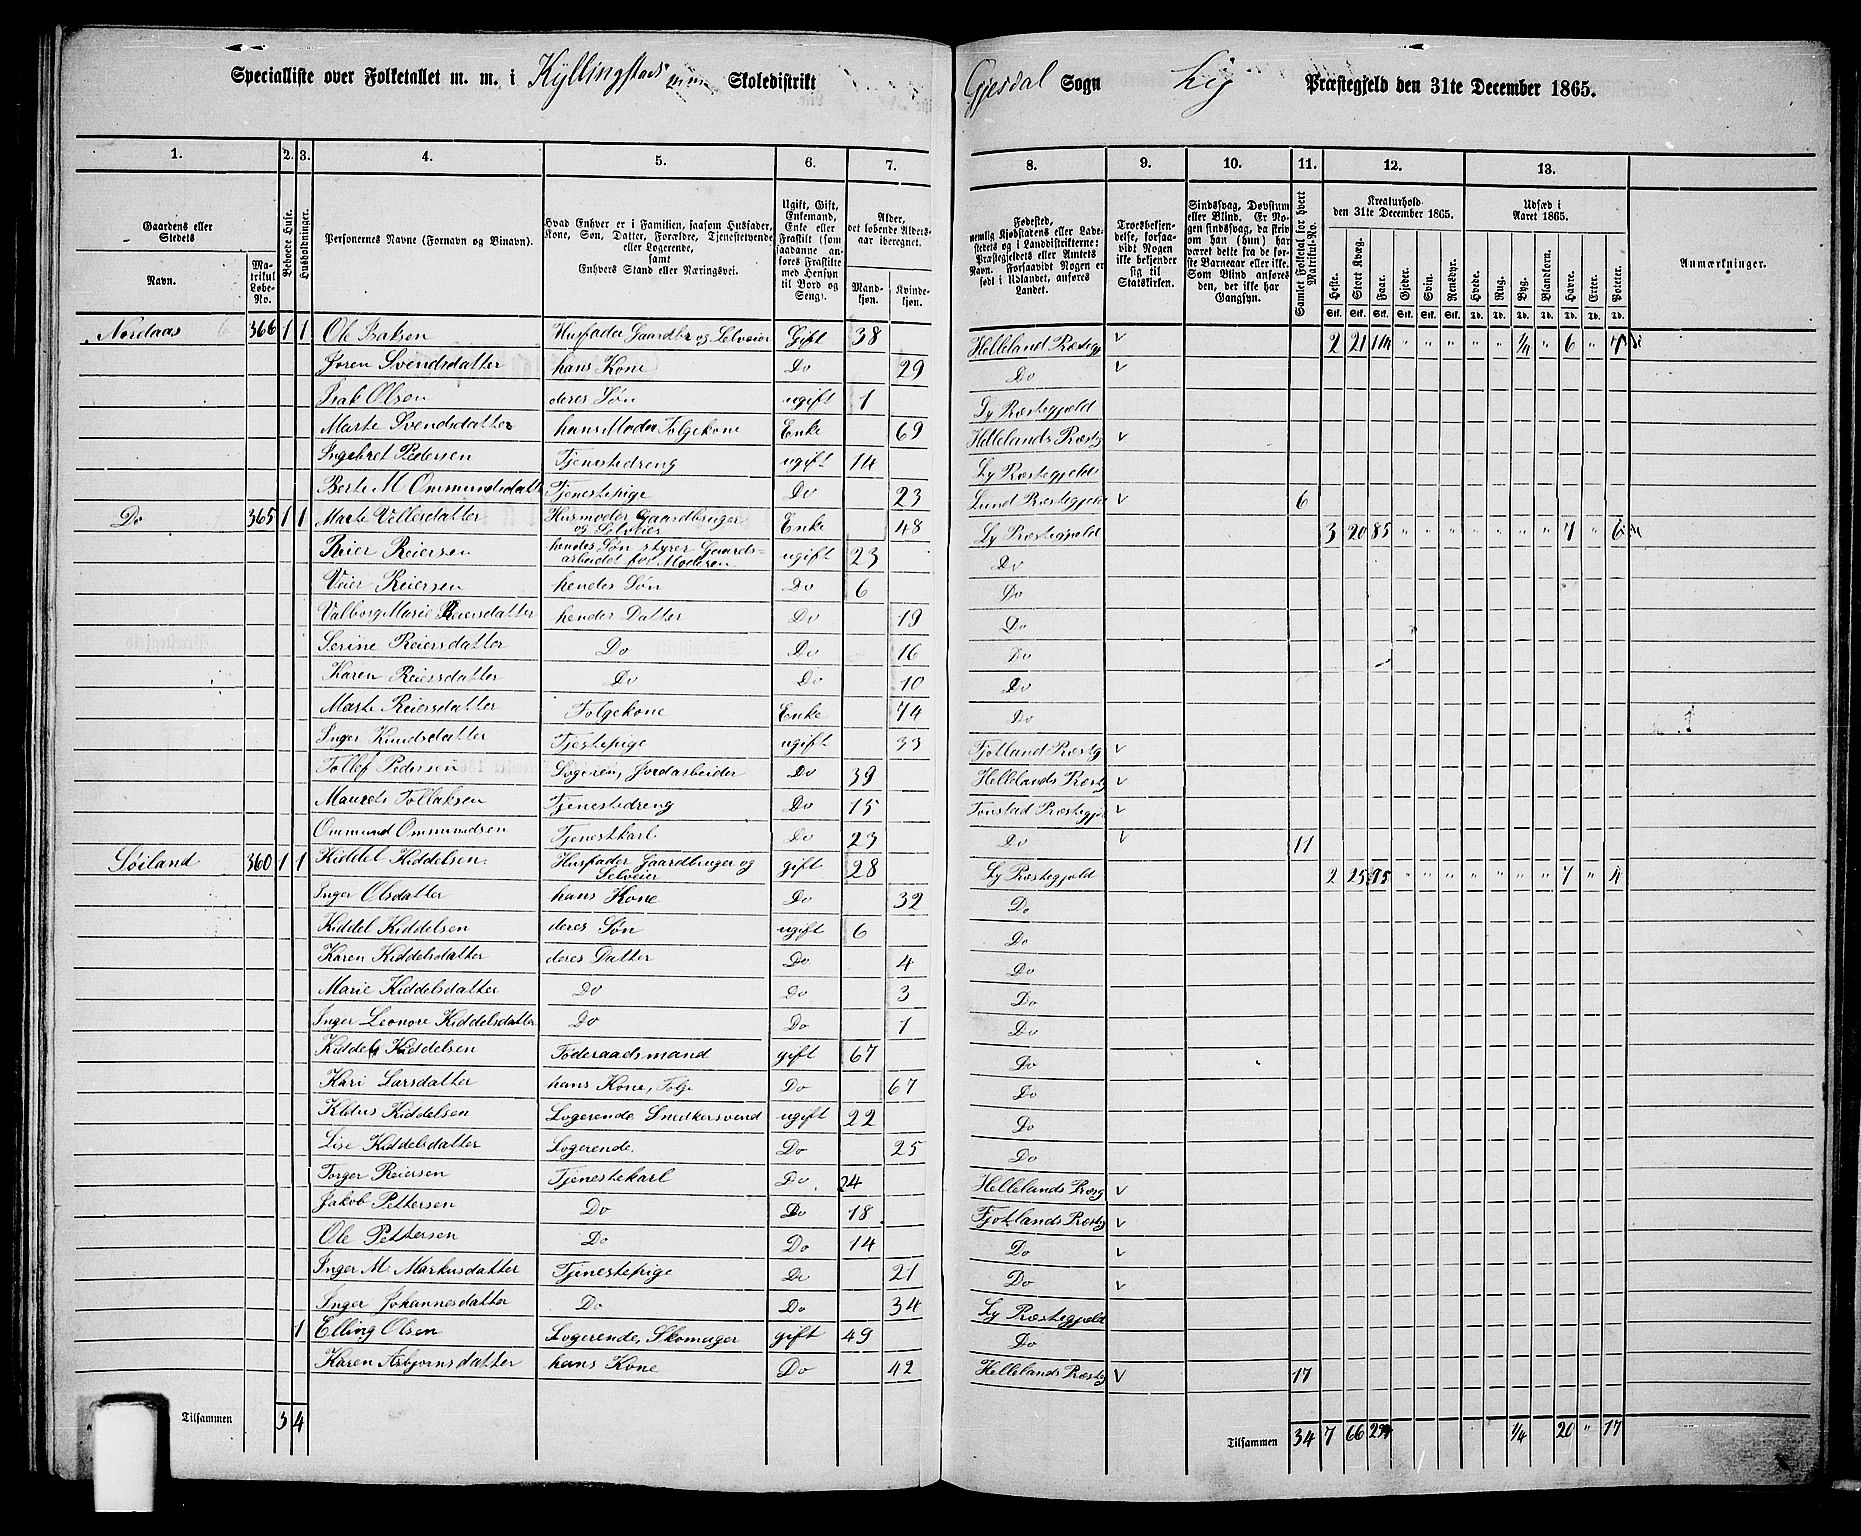 Specialliste over Folketallet m. m. i Kyllingstads m m Skoledistrikt Gjesdal Sogn Lig Præstegjeld den 31te December 1865.
1. 2. 3. 4. 5. 6. 7. 8. 9. 10. 11. 12. 13.
Gaardens eller Stedets
Navn.
Matrikul Løbe-No.
Beboede Huse.
Husholdninger.
Personernes Navne (Fornavn og Binavn).
Hvad Enhver er i Familien, saasom Husfader, Kone, Søn, Datter, Forældre, Tjenestetyende eller Logerende, samt Enhvers Stand eller Næringsvei.
Ugift, Gift, Enkemand, Enke eller Fraskilt (som saadanne anføres Fraskilte med Hensyn til Bord og Seng).
Alder, det løbende Alders-aar iberegnet.
Mandkjøn. Kvindekjøn.
Fødested, nemlig Kjøbstadens eller Ladestedets og i Landdistrikterne: Præstegjeldets eller Amtets Navn. Forsaavidt Nogen er født i Udlandet, anføres Landet.
Troesbekjendelse, forsaavidt Nogen ikke bekjender sig til Statskirken.
Sindssvag, Døvstum eller Blind. Er Nogen sindssvag, da skrives om han (hun) har været dette fra de første Barneaar eller ikke. Som Blind anføres den, der ikke har Gangsyn.
Samlet Folketal for hvert Matrikul-No.
Kreaturhold den 31te December 1865.
Heste. Stort Kvæg. Faar. Gjeder. Svin. Rensdyr.
Udsæd i Aaret 1865.
Hvede. Rug. Byg. Blandkorn. Havre. Erter. Poteter.
Anmærkninger.
Nordaas 366 1 1 Ole Isaksen Husfader Gaardbr og Selveier Gift 38 Helleland Præstegj v 2 21 114 " " " " " 1/4 " 6 " 7
Joren Svendsdatter hans Kone Do 29 Do v
Isak Olsen deres Søn ugift 1 Ly Præstegjeld
Marte Svendsdatter hans Moder Folgekone Enke 69 Hellelands Præstg v
Ingebret Pedersen Tjenestedreng ugift 14 Ly Præstegjeld
Berte M Ommundsdatter Tjenestepige Do 23 Lund Præstegjeld v 6
Do 365 1 1 Marte Vellesdatter Husmoder Gaardbruger og Selveier Enke 48 Ly Præstegjeld 3 20 85 " " " " " " " 7 " 6
Reier Reiersen hendes Søn styrer Gaards-arbeidet for Moderen ugift 23 Do
Veier Reiersen hendes Søn Do 6 Do
Valborg Marie Reiersdatter hendes Datter Do 19 Do
Serine Reiersdatter Do Do 16 Do
Karen Reiersdatter Do Do 10 Do
Marte Reiersdatter Folgekone Enke 74 Do
Inger Knudsdatter Tjestepige ugift 33 Fjotland Præstg v
Tollef Pedersen Logeren, Jordarbeider Do 39 Hellelands Præstg v
Maurets Tollaksen Tjenestedreng Do 15 Tonstad Præstegjel v
Ommund Ommundsen Tjenestkarl Do 23 Do v 11
Søiland 360 1 1 Kiddel Kiddelsen Husfader Gaardbruger og Selveier gift 28 Ly Præstegjeld 2 25 95 " " " " " " " 7 " 4
Inger Olsdatter hans Kone Do 32 Do
Kiddel Kiddelsen deres Søn ugift 6 Do
Karen Kiddelsdatter deres Datter Do 4 Do
Marie Kiddelsdatter Do Do 3 Do
Inger Leonore Kiddelsdatter Do Do 1 Do
Kiddel Kiddelsen Føderaadsmand gift 67 Do
Kari Larsdatter hans Kone, Folge Do 67 Do
Kldus Kiddelsen Logerende Snedkersvend ugift 22 Do
Lise Kiddelsdatter Logerende Do 25 Do
Torger Reiersen Tjenestekarl Do 24 Hellelands Præsg v
Jakob Pettersen Do Do 18 Fjotlands Præstg v
Ole Pettersen Do Do 14 Do v
Inger M Markusdatter Tjenestepige Do 21 Do v
Inger Johannesdatter Do Do 34 Ly Præstegjeld
1 Elling Olsen Logerende, Skomager gift 49 Do
Karen Asbjornsdatter hans Kone Do 42 Hellelands Præsteg v 17
Tilsammen 3 4 Tilsammen 34 7 66 294 1/4 20 " 17